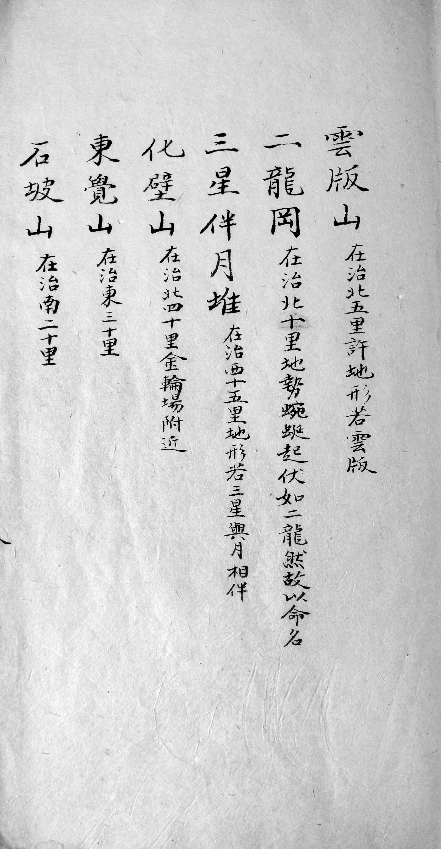 雲版山 在治北五里許地形若雲版
二龍岡 在治北十里地勢蜿蜒起伏如二龍然故以命名
三星伴月堆 在治西十五里地形若三星與月相伴
化壁山 在治北四十里金輪場附近
東覺山 在治東三十里
石坡山 在治南二十里